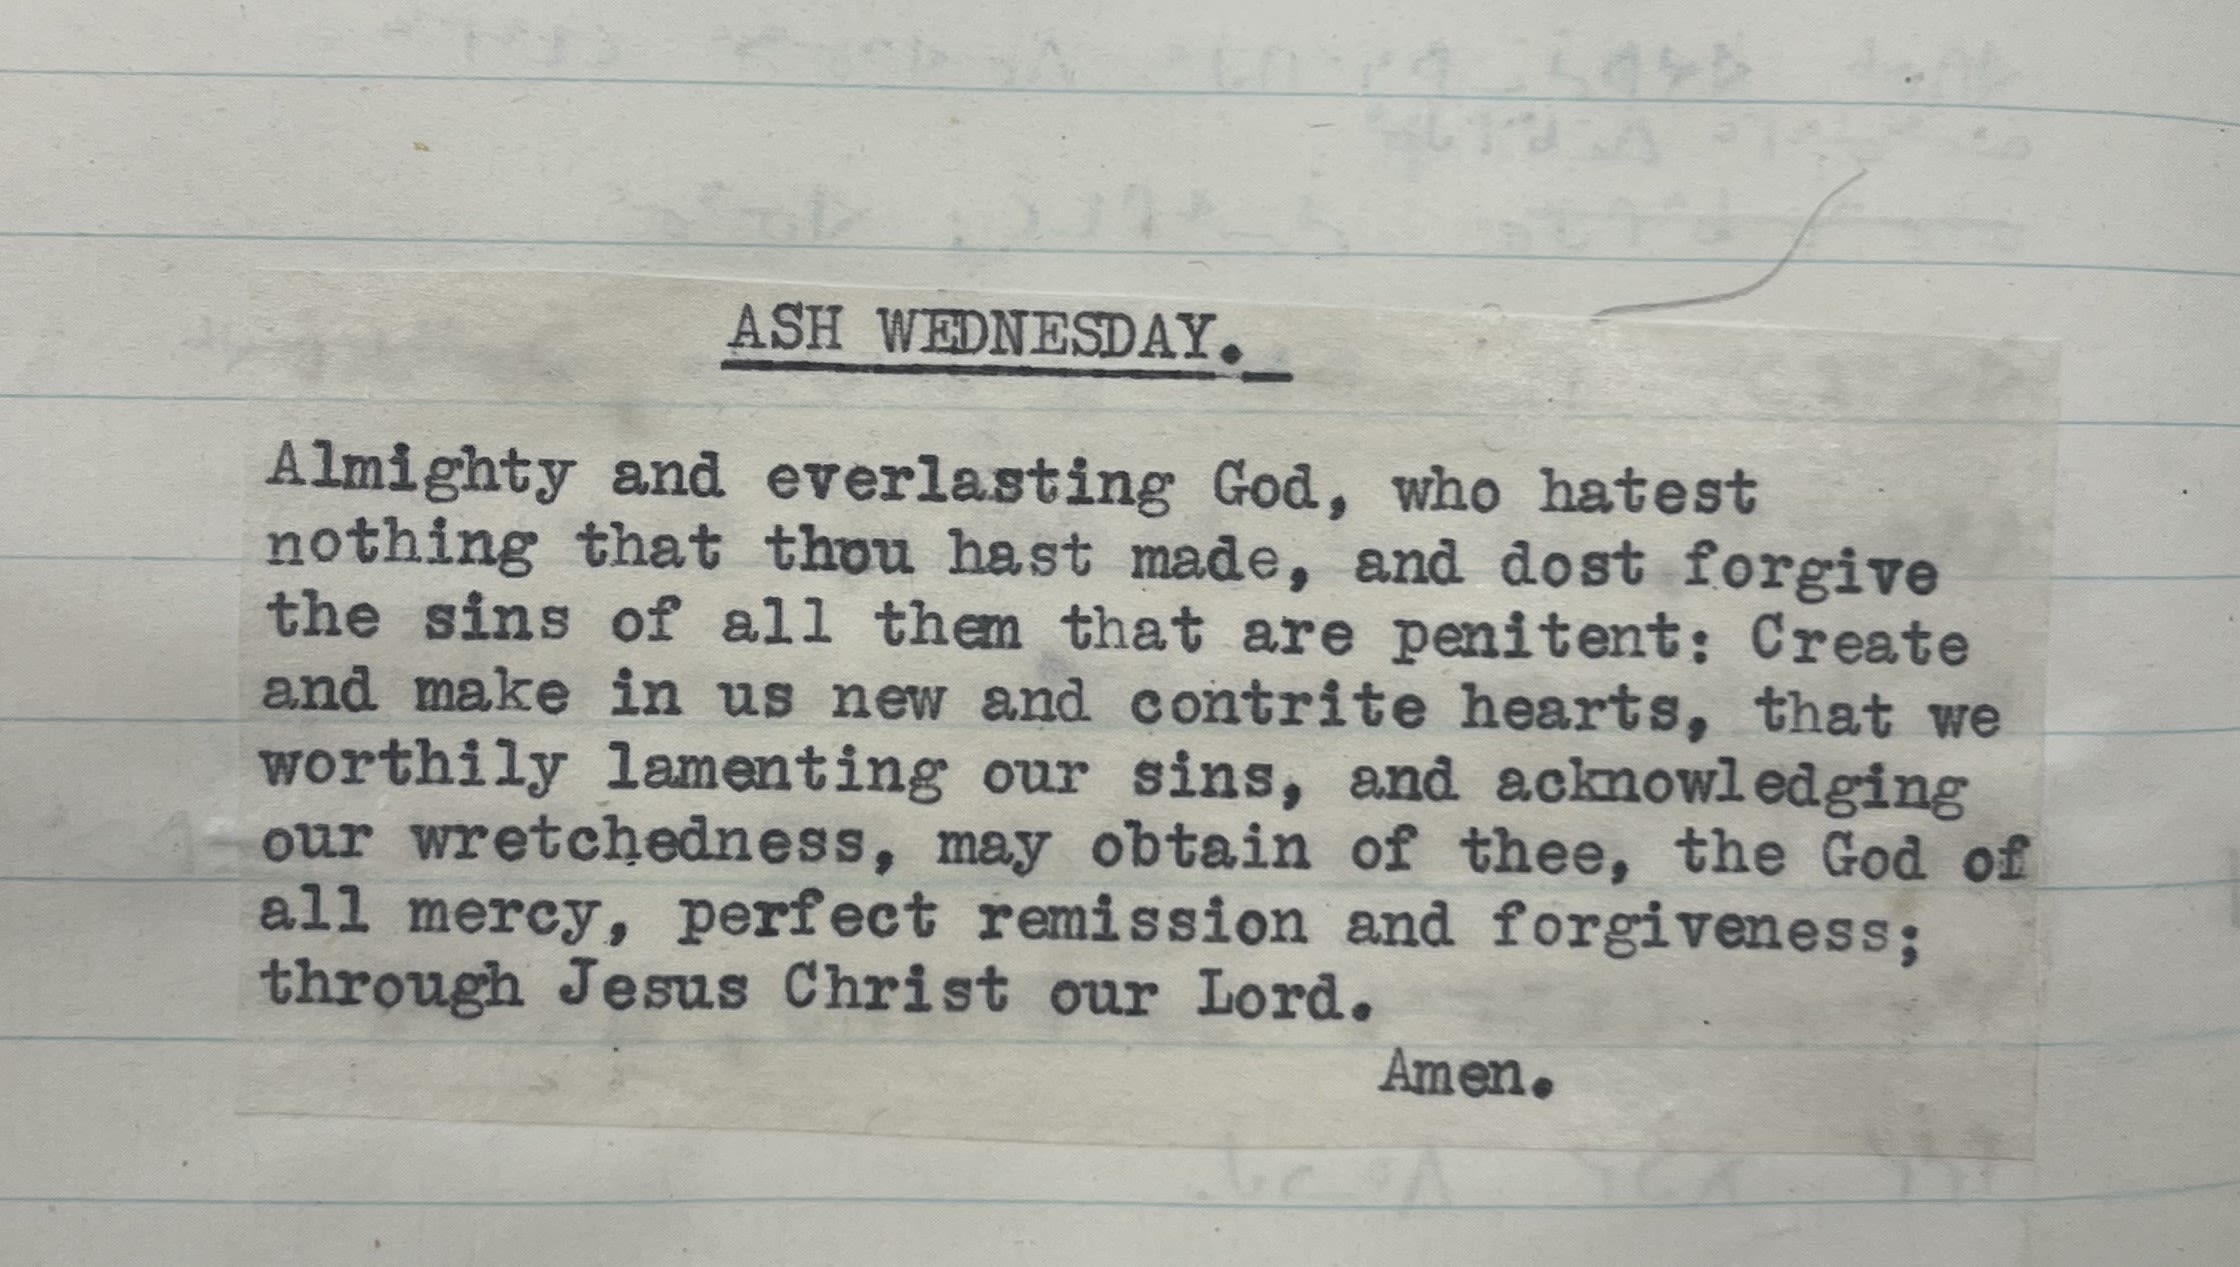 ASH WEDNESDAY.
Almighty and everlasting God, who hatest
nothing that thou hast made, and dost forgive
the sins of all them that are penitent: Create
and make in us new and contrite hearts, that we
worthily lamenting our sins, and acknowledging
our wretchedness, may obtain of thee, the God of
all mercy, perfect remission and forgiveness;
through Jesus Christ our Lord.
Amen.